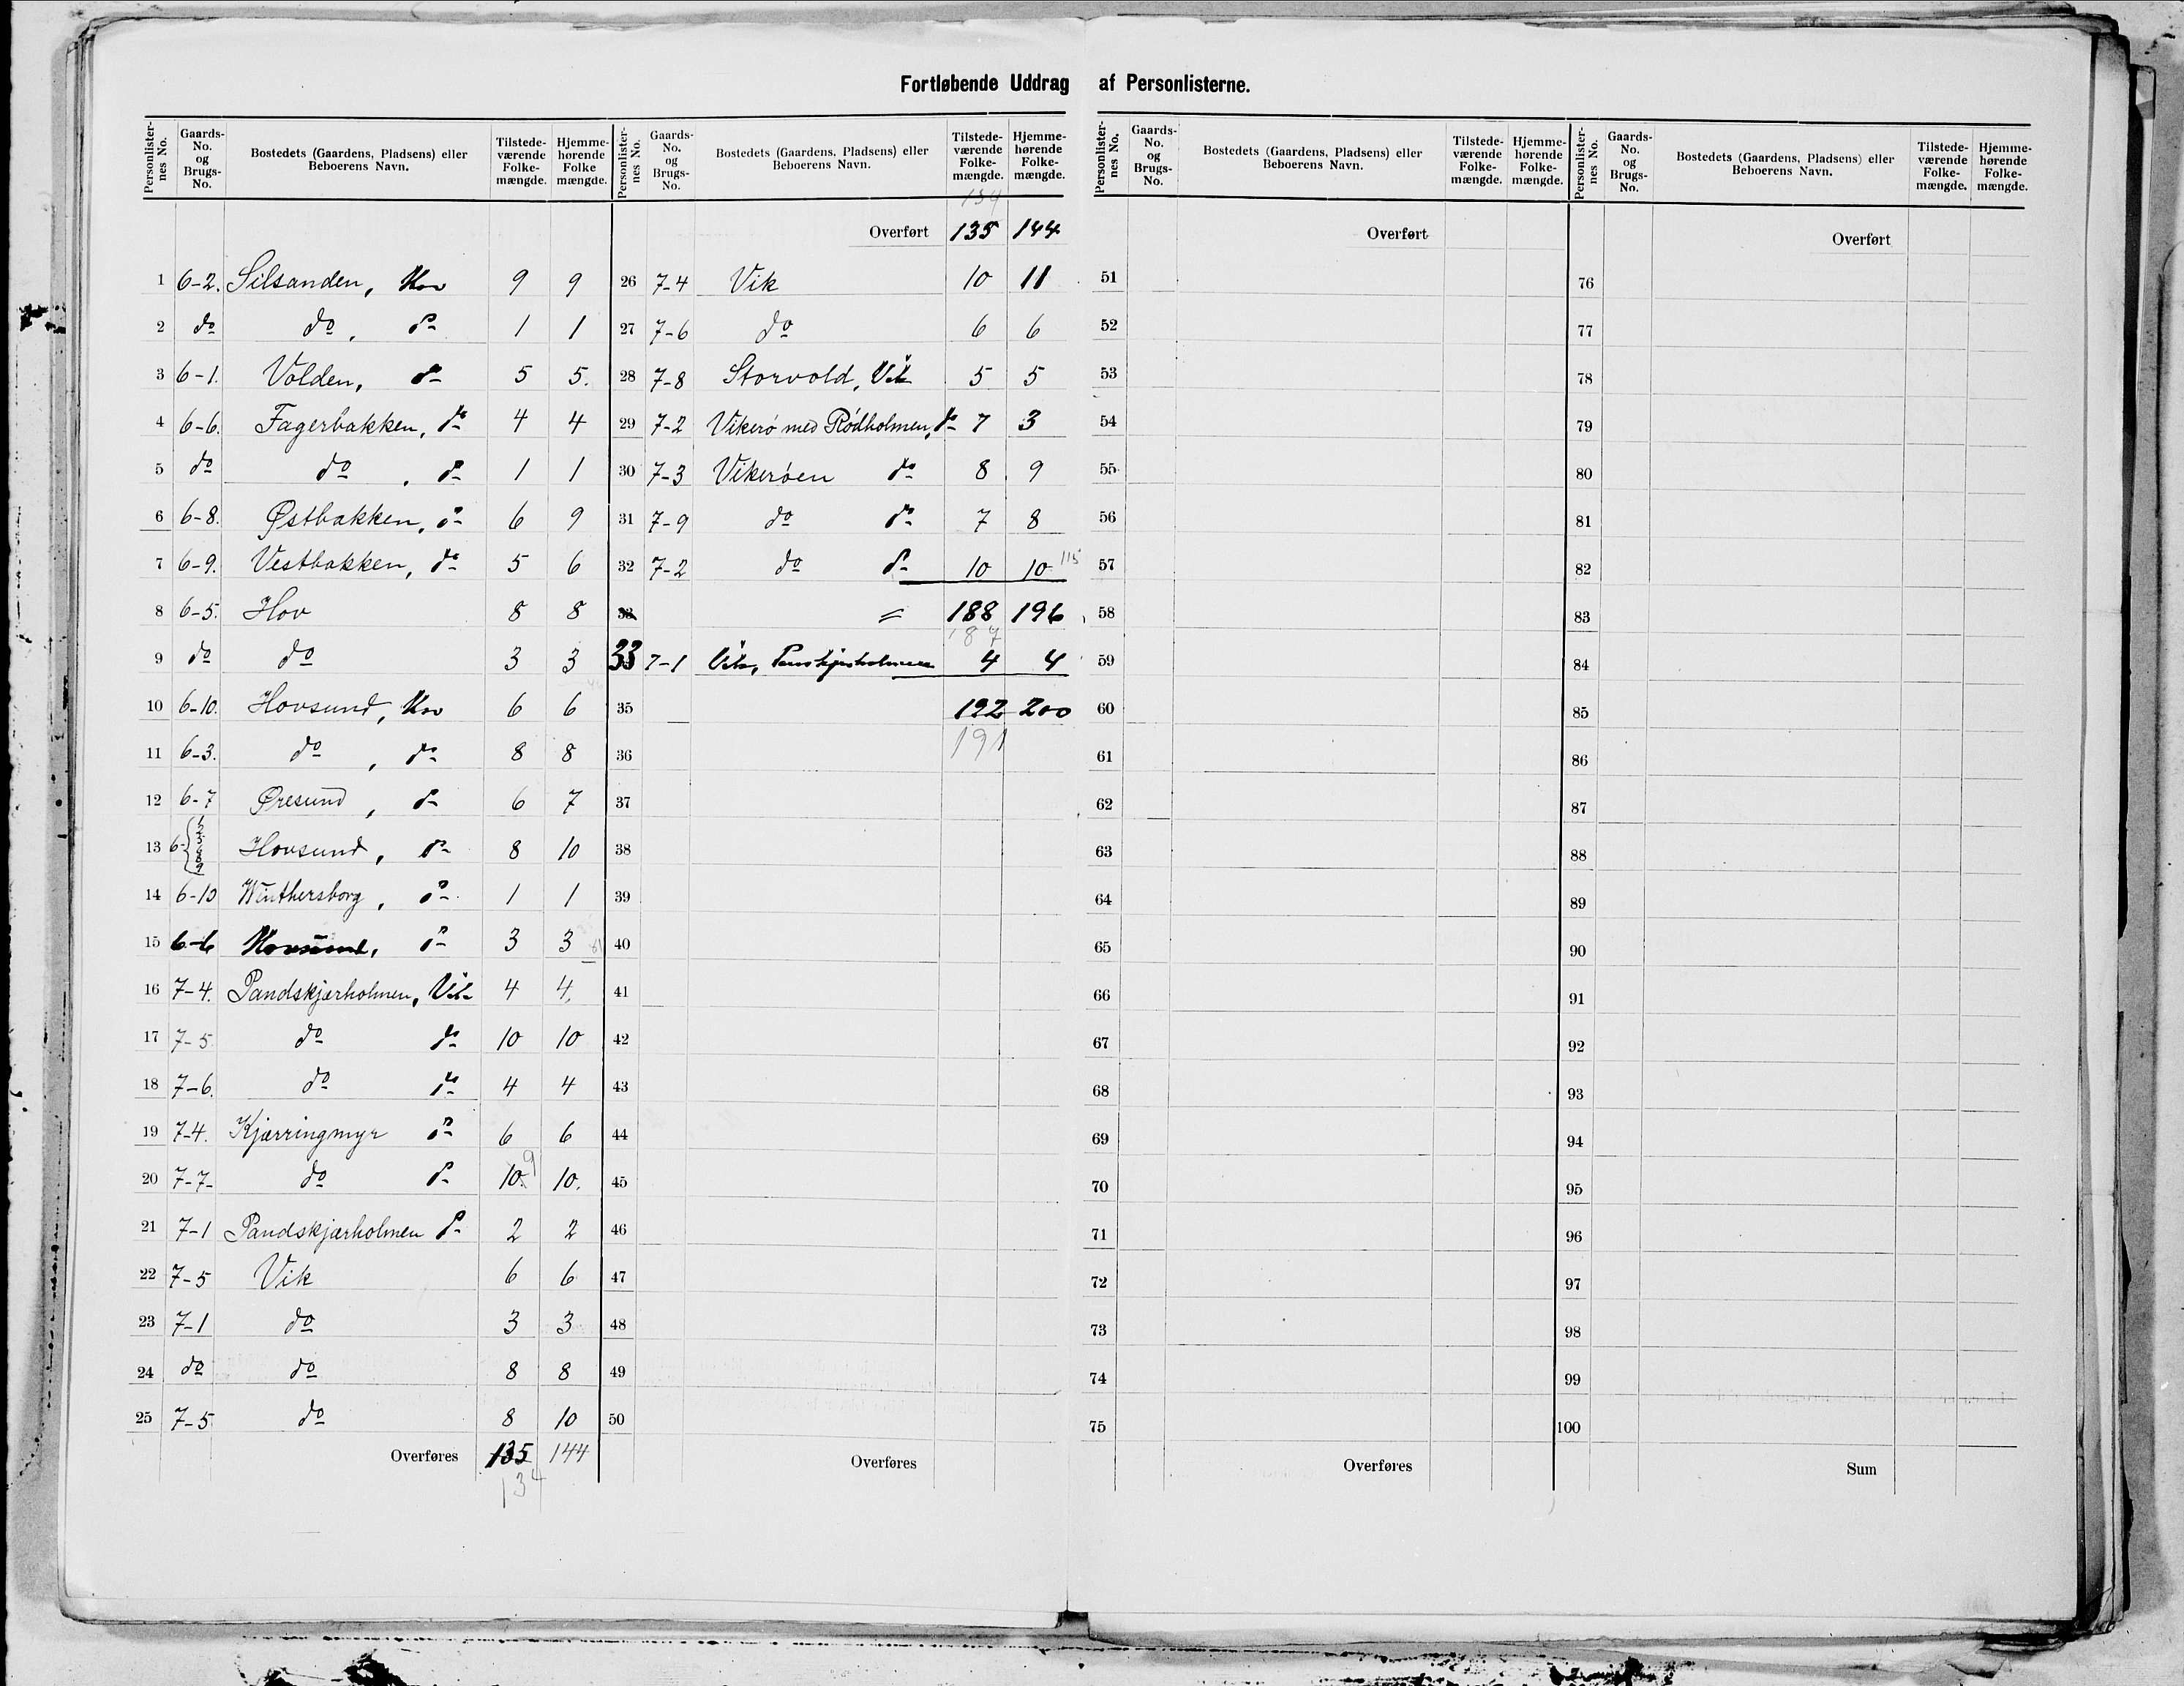 Fortløbende Uddrag af Personlisterne.
Personlisternes No. Gaards-No. og Brugs-No. Bostedets (Gaardens, Pladsens) eller Beboerens Navn. Tilstedeværende Folkemængde. Hjemmehørende Folke mængde.
1 6-2. Silsanden, Hov 9 9
2 do do, do 1 1
3 6-1. Volden, do 5 5.
4 6-6. Fagerbakken, do 4 4
5 do do, do 1 1
6 6-8. Østbakken, do 6 9
7 6-9. Vestbakken, do 5 6
8 6-5. Hov 8 8
9 do do 3 3
10 6-10. Hovsund, Hov 6 6
11 6-3. do, do 8 8
12 6-7 Øresund, do 6 7
13 6- Hovsund, do 8 10
14 6-10 Winthersborg, do 1 1
15 6-6 Hovsund, do 3 3
16 7-4. Pandskjærholmen, Vik 4 4,
17 7-5 do do 10 10
18 7-6. do do 4 4
19 7-4. Kjærringmyr do 6 6
20 7-7- do do 10. 9 10.
21 7-1 Pandskjærholmen do 2 2
22 7-5 Vik 6 6
23 7-1 do 3 3
24 do do 8 8
25 7-5 do 8 10
Overføres 135 144
134
Personlisternes No. Gaards-No. og Brugs-No. Bostedets (Gaardens, Pladsens) eller Beboerens Navn. Tilstedeværende Folkemængde. Hjemmehørende Folkemængde.
134
Overført 135 144
26 7-4 Vik 10 11
27 7-6 do 6 6
28 7-8 Storvold, Vik 5 5
29 7-2 Vikerø med Rödholmen, do 7 3
30 7-3 Vikerøen do 8 9
31 7-9 do do 7 8
32 7-2 do do 10 10 115
33 = 188 196
187
33 7-1 Vik, Panskjærholmen 4 4
35 192 200
36 191
37
38
39
40
41
42
43
44
45
46
47
48
49
50
Overføres
Personlisternes No. Gaards-No. og Brugs-No. Bostedets (Gaardens, Pladsens) eller Beboerens Navn. Tilstedeværende Folkemængde. Hjemmehørende Folkemængde.
Overført
51
52
53
54
55
56
57
58
59
60
61
62
63
64
65
66
67
68
69
70
71
72
73
74
75
Overføres
Personlisternes No. Gaards-No. og Brugs-No. Bostedets (Gaardens, Pladsens) eller Beboerens Navn. Tilstedeværende Folkemængde. Hjemmehørende Folkemængde.
Overført
76
77
78
79
80
81
82
83
84
85
86
87
88
89
90
91
92
93
94
95
96
97
98
99
100
Sum